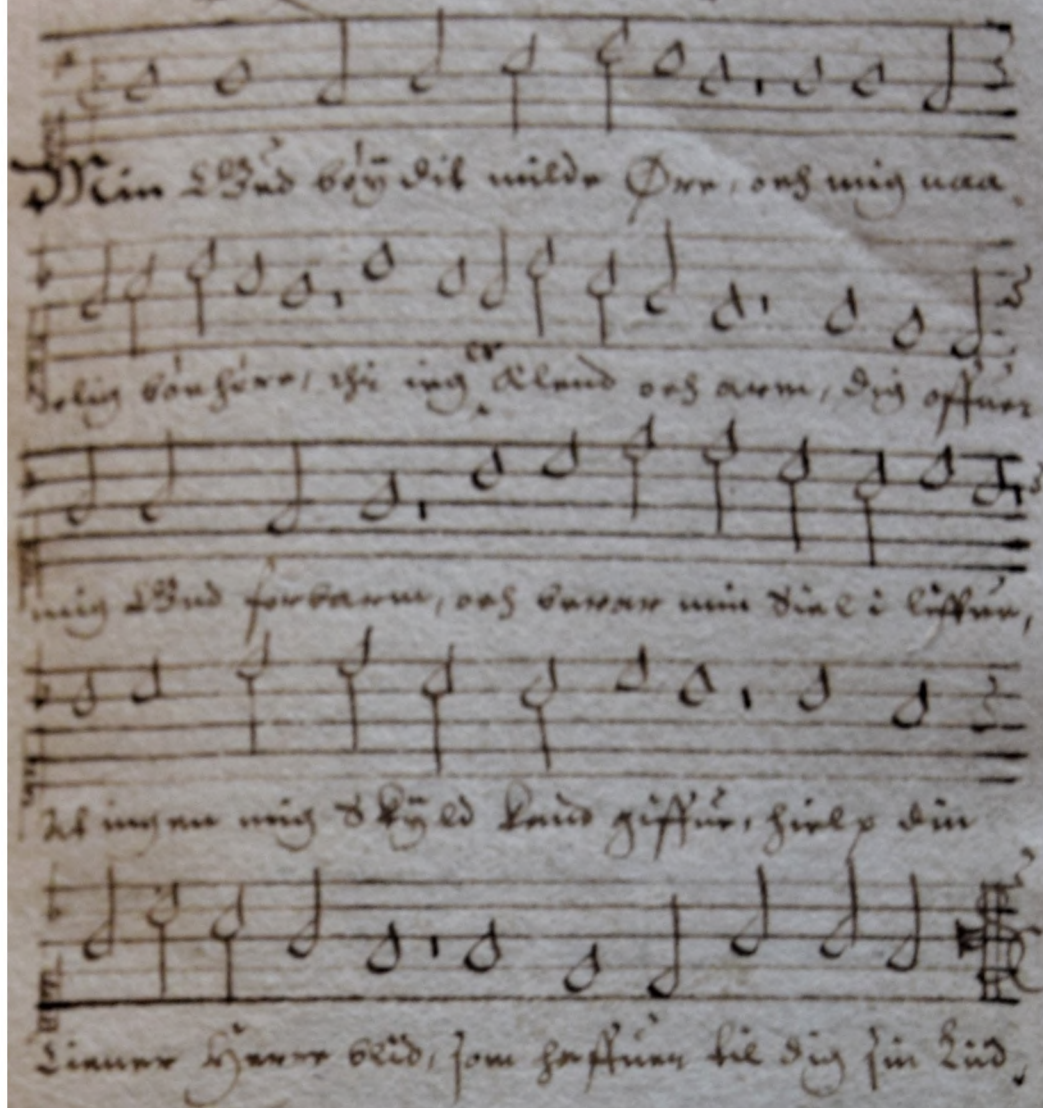 Min Gud böÿ dit milde Øre, och mig naa,
delig bönhöre, thi ieg er Elend och arm, dig offuer
mig Gud forbarm, och bevar min Siel i liffue,
At ingen mig Skÿld kand giffue, hielp din
Tiener Herre blid, som haffuer til dig sin Liid,